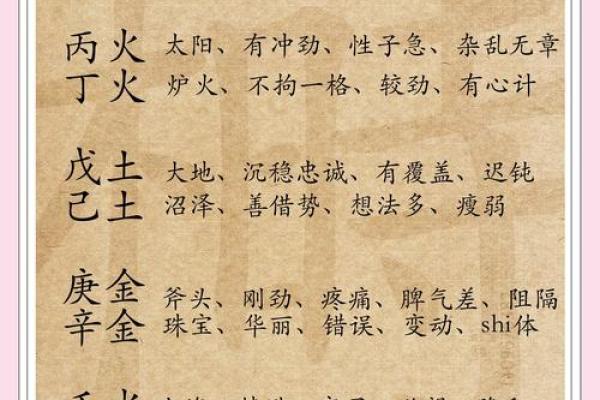 丙火 太阳、有冲劲、性子急、杂乱无章
丁火 炉火、不拘一格、较劲、有心计
戊土 大地、沉稳忠诚、有覆盖、迟钝
己土 沼泽、善借势、想法多、瘦弱
庚金 斧头、刚劲、疼痛、脾气差、阻隔
辛金 珠宝、华丽、错误、变动、shi体